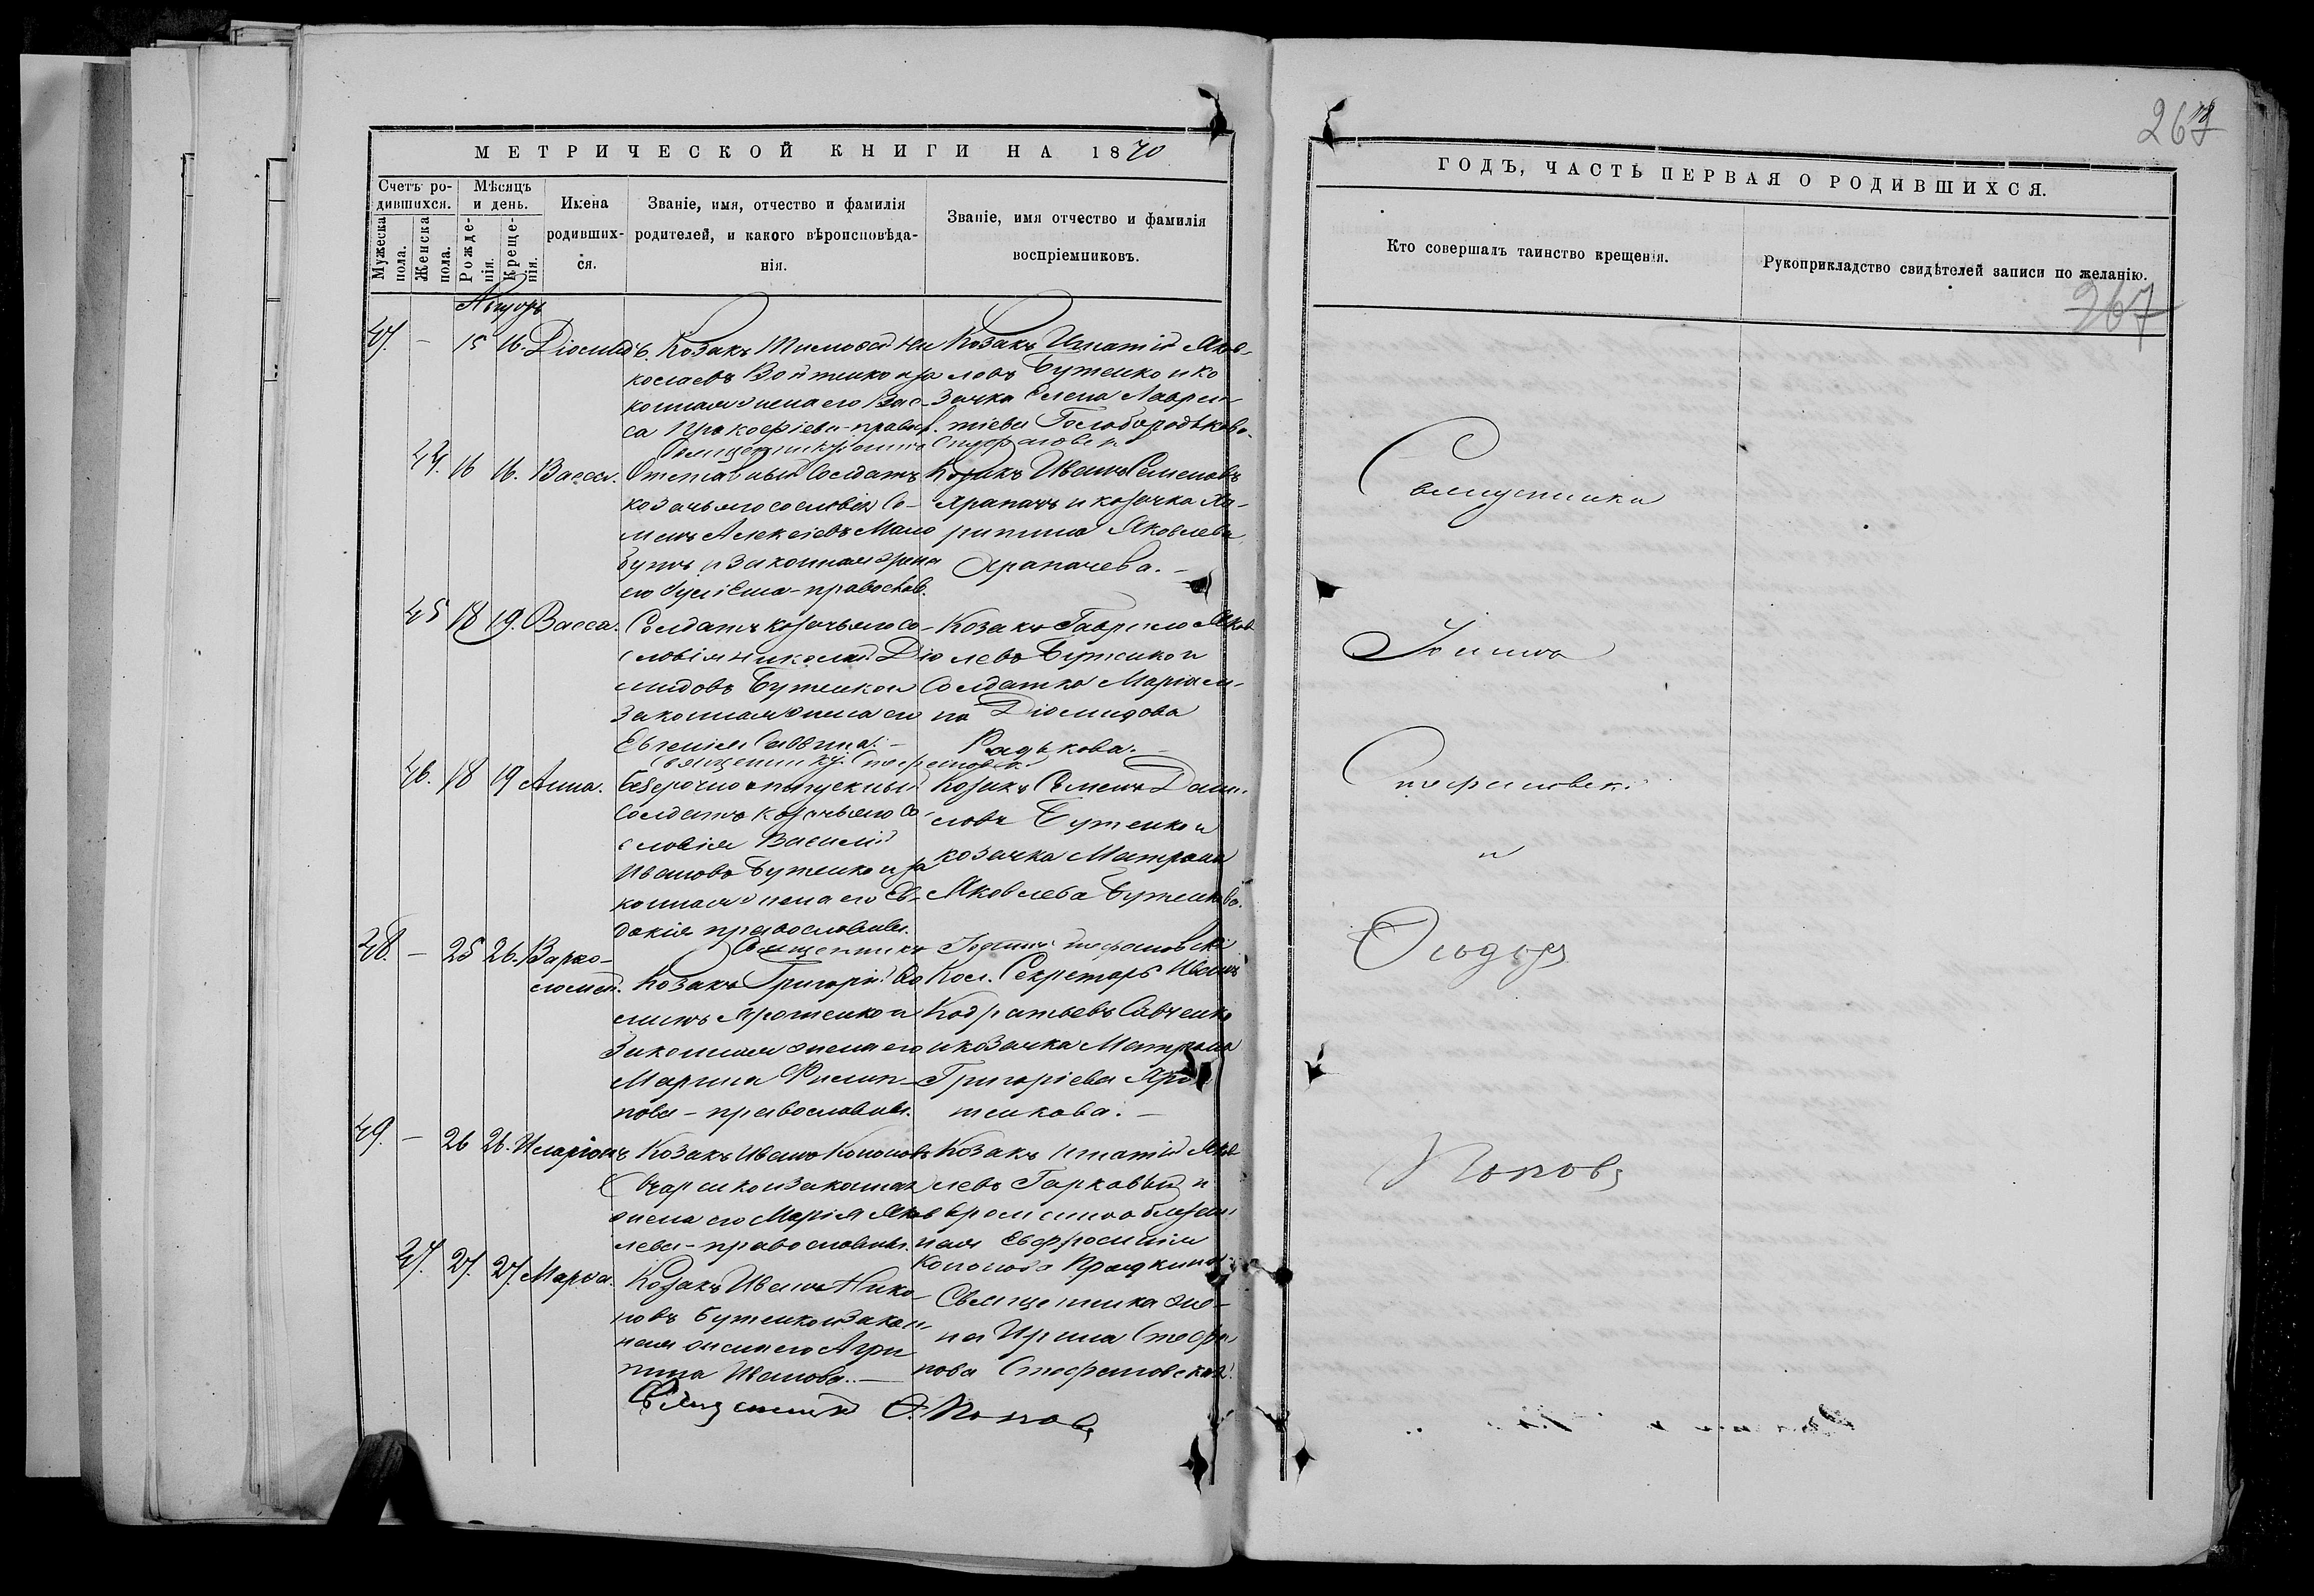 МЕТРИЧЕСКОЙ КНИГИ НА 1870
Счетъ ро-
дившихся.
Мѣсяцъ
и день.
Мужеска
пола.
Женска
пола.
Рожде-
нія.
Креще-
нія.
Имена
родивших-
ся.
Званіе, имя, отчество и фамилія
родителей, и какого вѣроисповѣда-
нія.
Званіе, имя отчество и фамилія
воспріемниковъ.
47. - 15 16. Діомидъ.
Козакъ Тимофей Ни
колаевъ Войтенко и за
конная жена его Вас-
са Прокофіева - правос.
Козакъ Игнатій Яков-
левъ Бутенко и ко
зачка Елена Лаврен-
тіева Голобородькова.
44. 16 16. Васса.
Отставный Солдатъ
козачьяго сословія Се-
менъ Алексіевъ Мало
бутъ и законная жена
его - православ.
Козакъ Иванъ Семеновъ
Храпачъ и козачка Ха-
ритина Яковлева
Храпачева. -
45 18 19. Васса.
Солдатъ козачьяго со-
словія Николай Діо
мидовъ Бутенко и
Законная жена его
Евгенія Саввина. -
Козакъ Гаврило Яков
левъ Бутенко и
Солдатка Маріам-
на Діомидова
Радькова. -
46. 18 19 Анна.
Безсрочноотпускный
Солдатъ козачьяго со-
словія Василій
Ивановъ Бутенко и за
конная жена его Ев-
докія православные.
Козакъ Семенъ Дани-
ловъ Бутенко и
козачка Матрона
Яковлева Бутенкова.
Священникъ Іоаннъ Стефановскій
48. - 25 26. Варѳо-
ломей.
Козакъ Григорій
Яротенко и
Законная жена его
Марина Филип-
пова - православные.
Кол. Секретарь Иванъ
Кодратьевъ Савченко
и козачка Матрона
Григоріева Яро-
тенкова. -
49. - 26 26. Иларіонъ
Козакъ Иванъ Кононовъ
и законная
жена его Марія Яков
лева - православные.
Козакъ Игнатій Яков
левъ Гаркавый и
Евфросинія
Кононова
47. 27. 27. Марѳа.
Козакъ Иванъ Нико-
новъ Бутенко и закон-
ная жена его Агри
пина Иванова. -
Священника же-
на Ирина Стефа-
нова Стефановская.
Священникъ Ѳ. Поповъ
263
ГОДЪ, ЧАСТЬ ПЕРВАЯ О РОДИВШИХСЯ.
Кто совершалъ таинство крещенія.
Рукоприкладство свидѣтелей записи по желанію.
267
Священники
Іоаннъ
Стефановскій
и
Ѳеодоръ
Поповъ